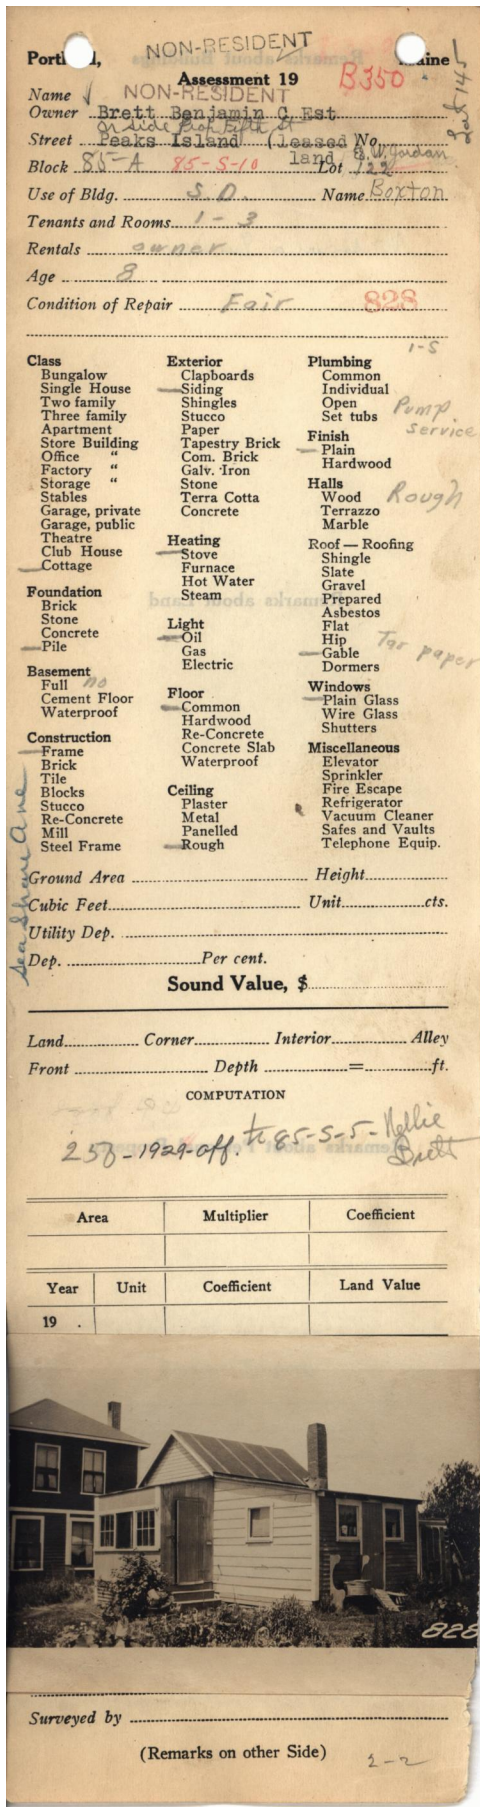 NON-RESIDENT
Portland, Maine
Assessment 19 B350
Name NON-RESIDENT
Owner Brett Benjamin C Est
on side Prop. Fifth St
Street Peaks Island (leased No.
land E. W. Jordan
Block 85-A 85-S-10 Lot 122
Use of Bldg. S. D. Name Boxton
Tenants and Rooms 1 - 3
Rentals owner
Age 8
Condition of Repair Fair 828
1-S
Class
Bungalow
Single House
Two family
Three family
Apartment
Store Building
Office "
Factory "
Storage "
Stables
Garage, private
Garage, public
Theatre
Club House
Cottage
Foundation
Brick
Stone
Concrete
Pile
Basement
Full no
Cement Floor
Waterproof
Construction
Frame
Brick
Tile
Blocks
Stucco
Re-Concrete
Mill
Steel Frame
Exterior
Clapboards
Siding
Shingles
Stucco
Paper
Tapestry Brick
Com. Brick
Galv. Iron
Stone
Terra Cotta
Concrete
Heating
Stove
Furnace
Hot Water
Steam
Light
Oil
Gas
Electric
Floor
Common
Hardwood
Re-Concrete
Concrete Slab
Waterproof
Ceiling
Plaster
Metal
Panelled
Rough
Plumbing
Common
Individual
Open Pump
Set tubs service
Finish
Plain
Hardwood
Halls
Wood Rough
Terrazzo
Marble
Roof — Roofing
Shingle
Slate
Gravel
Prepared
Asbestos
Flat
Hip
Gable Tar paper
Dormers
Windows
Plain Glass
Wire Glass
Shutters
Miscellaneous
Elevator
Sprinkler
Fire Escape
Refrigerator
Vacuum Cleaner
Safes and Vaults
Telephone Equip.
Sea Shore Ave
Ground Area Height
Cubic Feet Unit cts.
Utility Dep.
Dep. Per cent.
Sound Value, $
Land Corner Interior Alley
Front Depth = ft.
COMPUTATION
250-1929-off. to 85-S-5-Nellie
Brett
Area Multiplier Coefficient
Year Unit Coefficient Land Value
19 .
828
Surveyed by
(Remarks on other Side)
2-2